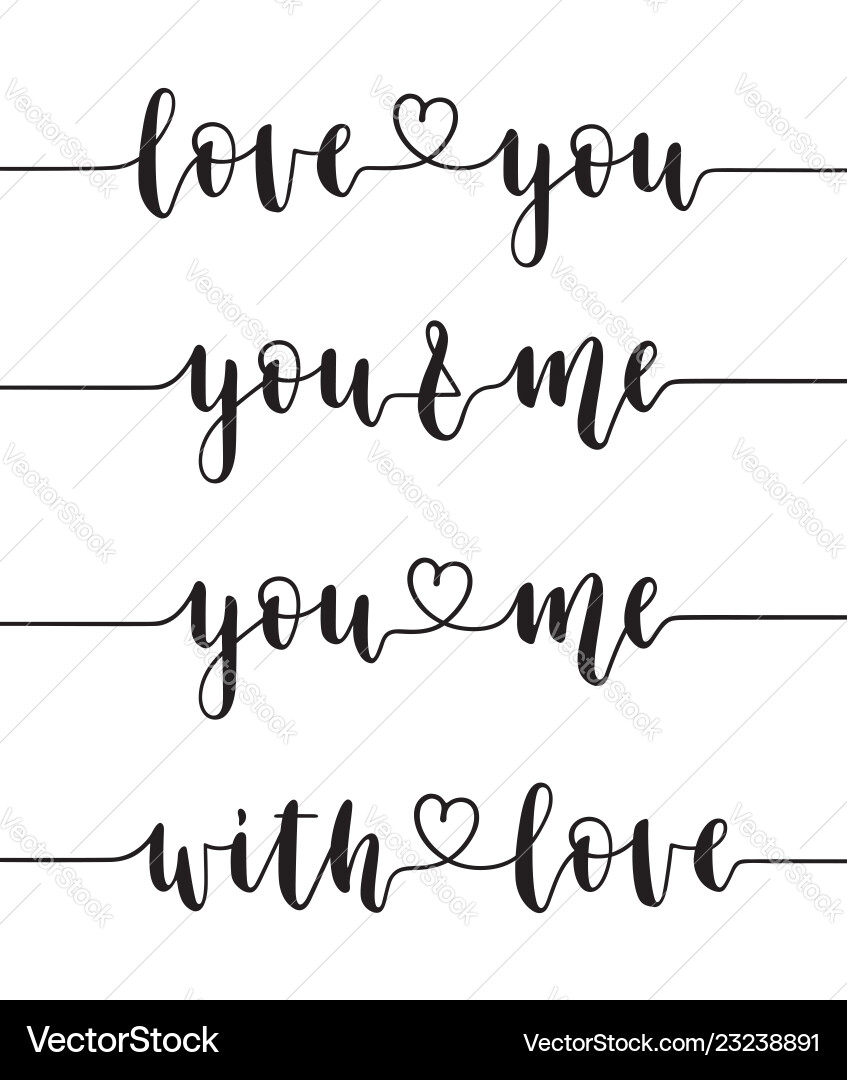 love you
you & me
you me
with love
VectorStock®
VectorStock.com/23238891